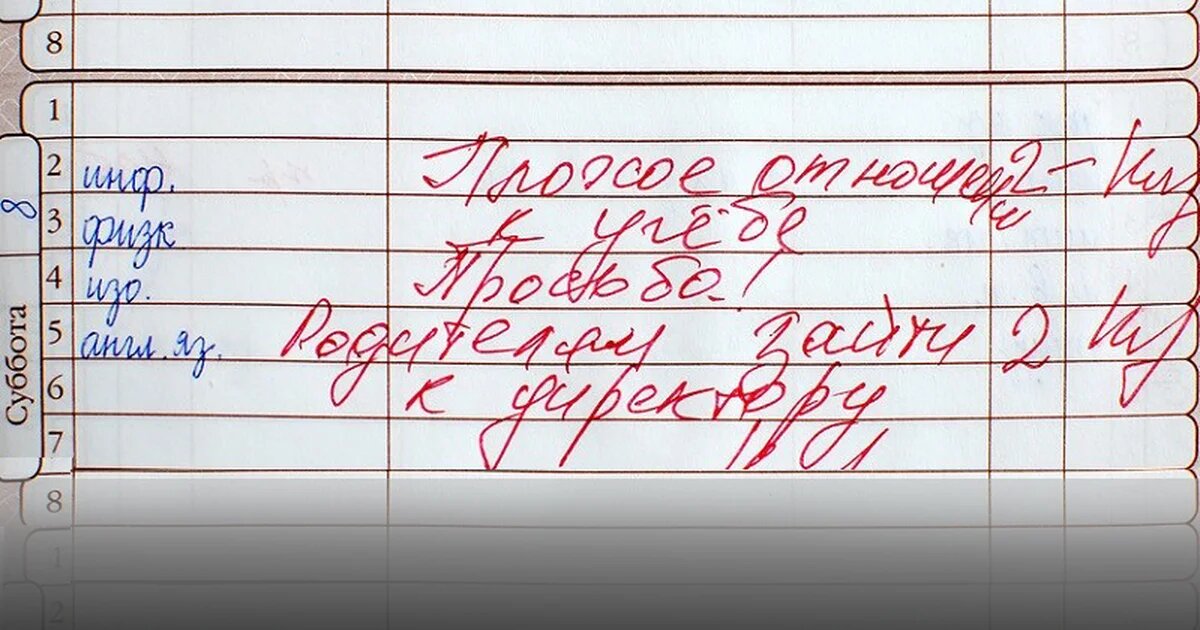 8
1
2 инф. Плохое отношени 2-
3 физк к учёбе
4 изо. Просьба!
5 англ. яз. Родителям зайти 2
6 к директору
7
8
1
2
8
Суббота